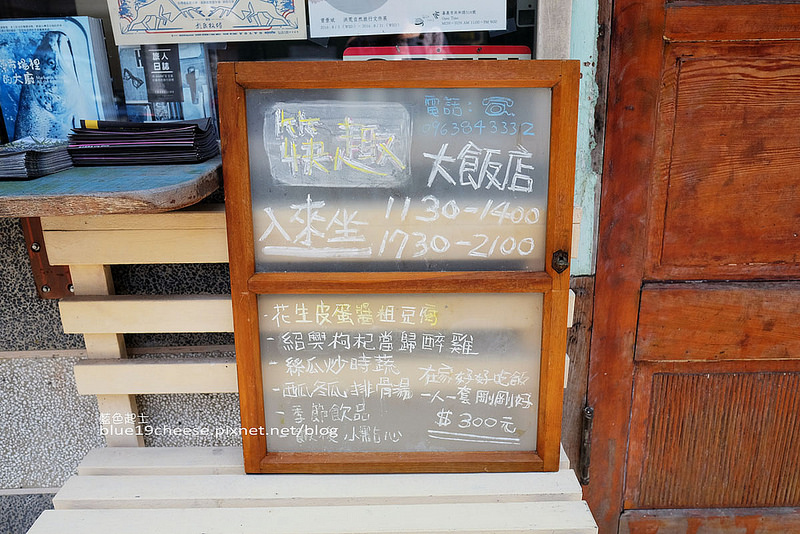 電話：
0963843332
趣
大飯店
入來坐
1130-1400
1730-2100
-花生皮蛋醬粗豆腐
-紹興枸杞當歸醉雞
-絲瓜炒時蔬
-西瓜冬瓜排骨湯
-季節飲品
小點心
在家好好吃飯
一人一套剛剛好
$300元
旅人
日誌
市場裡
的大廚
藍色起士
blue19cheese.pixnet.net/blog